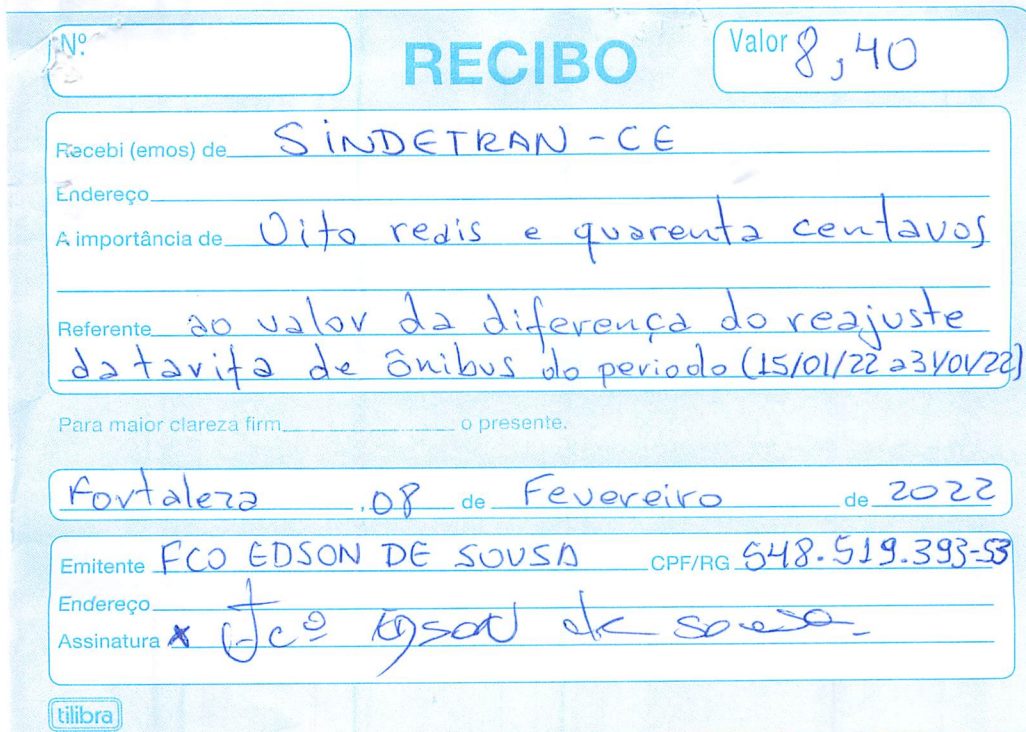 Nº
RECIBO
Valor 8,40
Recebi (emos) de SINDETRAN-CE
Endereço
A importância de Oito reais e quarenta centavos
Referente ao valor da diferença do reajuste
da tarifa de ônibus do periodo (15/01/22 a 31/01/22)
Para maior clareza firm o presente.
Fortaleza , 08 de Fevereiro de 2022
Emitente FCO EDSON DE SOUSA CPF/RG 548.519.393-53
Endereço
Assinatura x Fcº Edson de Sousa
tilibra